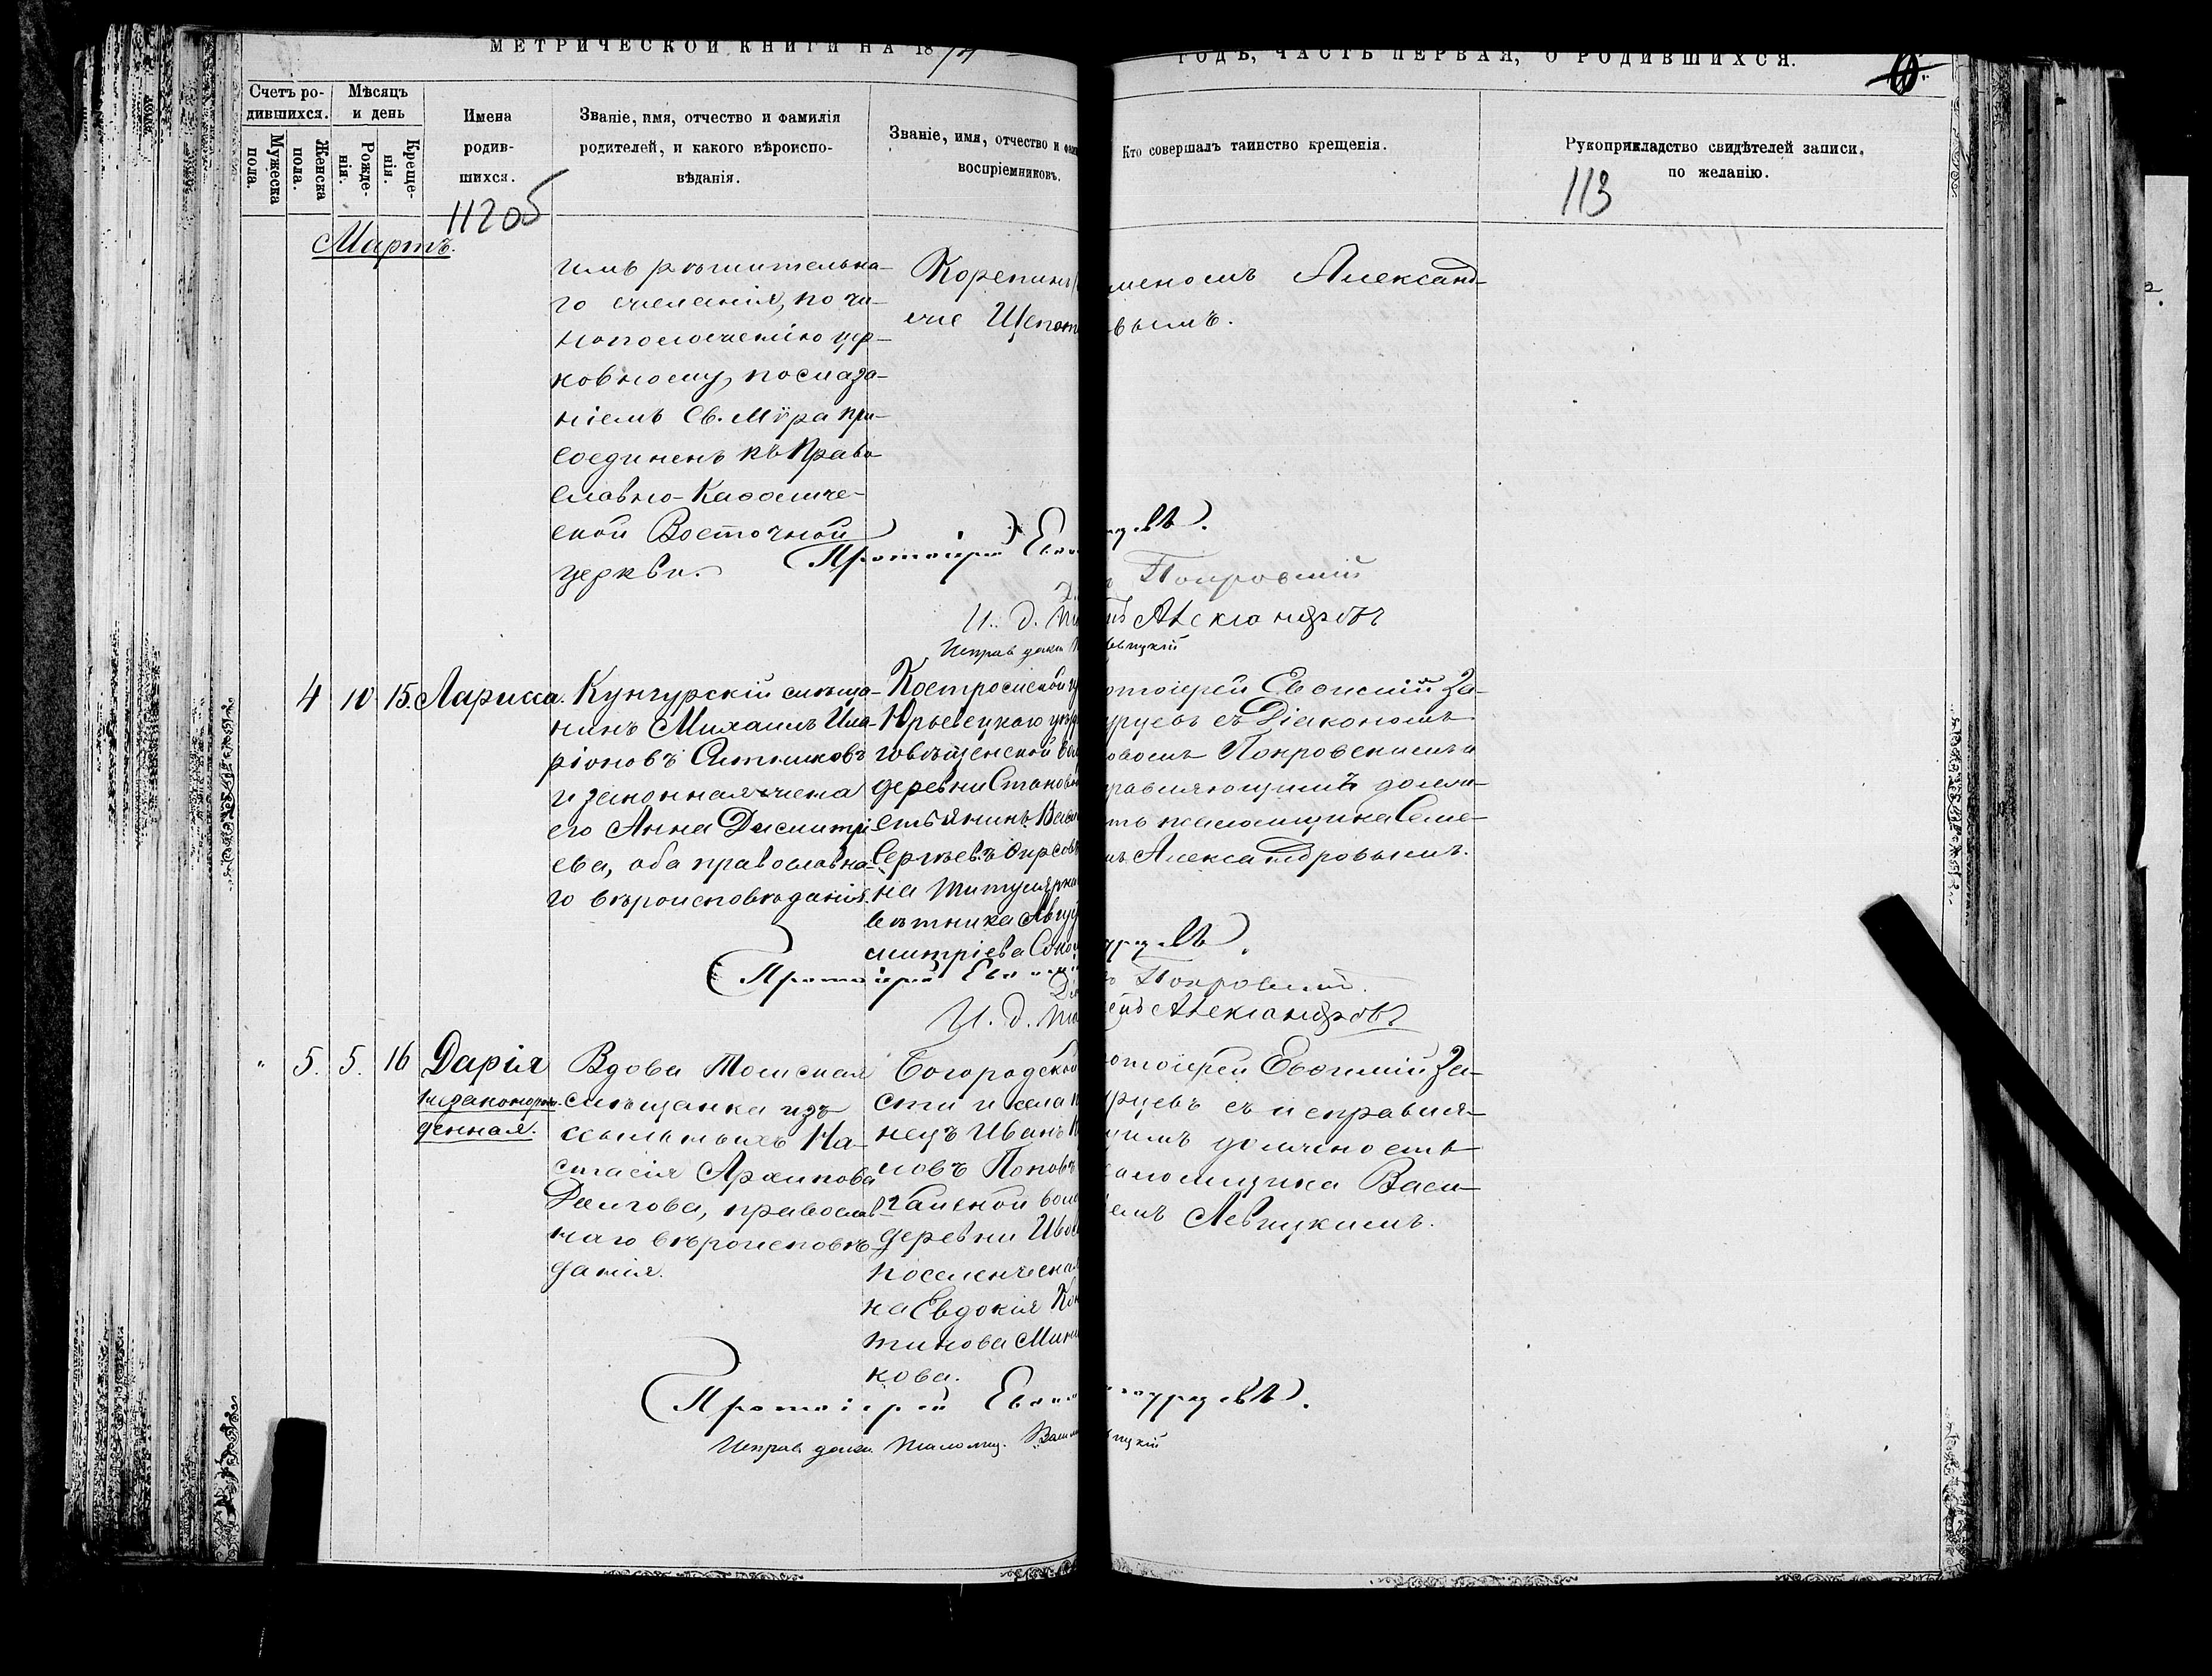 МЕТРИЧЕСКОЙ КНИГИ НА 18
ГОДЪ, ЧАСТЬ ПЕРВАЯ, О РОДИВШИХСЯ.
Счетъ ро-
дившихся.
Мужеска
пола.
Женска
пола.
Мѣсяцъ
и день
Рожде-
нія.
Креще-
нія.
Имена
родив-
шихся.
Званіе, имя, отчество и фамилія
родителей, и какого вѣроиспо-
вѣданія.
Званіе, имя, отчество и фами
воспріемниковъ.
Кто совершалъ таинство крещенія.
Рукоприкладство свидѣтелей записи,
по желанію.
11205
113
Мартъ.
имъ рѣшительна-
го желанія, по чи-
ноположенію цер-
ковному, помаза-
ніемъ Св. Мѵра при-
соединенъ къ Право
славно-Каѳоличе-
ской Восточной
церкви.
Корепинъ
Щепот
меномъ Александ-
вымъ.
Протоіерей Евѳи
Покровскій
И. д.
Александровъ
Исправ долж
4 10 15.Ларисса.
Кунгурскій мѣща-
нинъ Михаилъ Ила-
ріоновъ Ситниковъ
и законная жена
его Анна Димитрі
ева, оба православна-
го вѣроисповѣданія.
Костромской гу
Юрьевецкаго уѣзд
говѣщенской вол
деревни Становы
стьянинъ Васи
Сергѣевъ Фирсовъ
на титулярна
вѣтника Авгу
митріева Соко
отоіерей Евѳимій За-
уруевъ съ Діакономъ
овомъ Покровскимъ и
равляющимъ долж-
ть псаломщика Семе-
мъ Александровымъ.
Протоіерей Евѳимі
Покровскій.
И. д.
Александровъ
" 5. 5. 16 Дарія
незаконорож-
денная.
Вдова Томская
мѣщанка изъ
ссыльныхъ На-
стасія Архипова
Долгова, православ
наго вѣроисповѣ-
данія.
Богородской
сти и села
нецъ Иванъ
ловъ Поповъ
гайской вол
деревни
поселенческая
ка Евдокія Кон
тинова Мин
кова.
отоіерей Евѳимій За-
руевъ съ исправля-
щимъ должность
саломщика Васи-
емъ Левицкимъ.
Протоіерей Евѳим
Исправ долж. псаломщ. Васил
ицкій